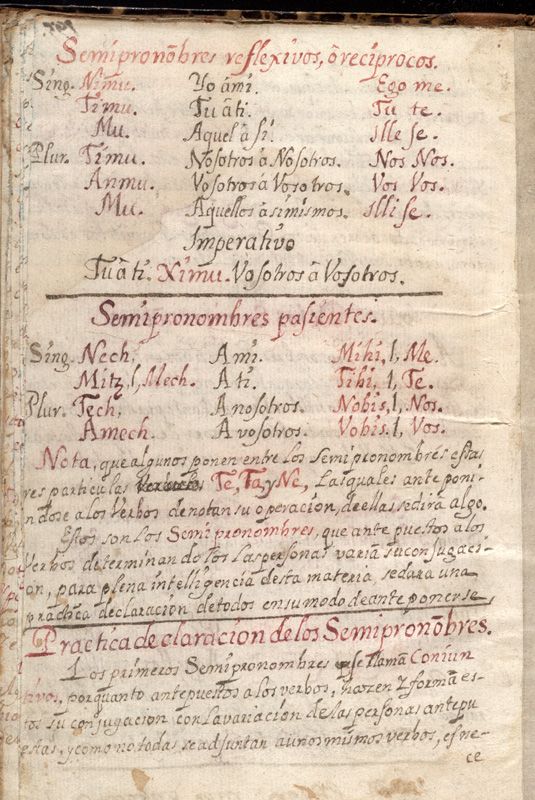 Semipronõbres reflexivos, ô reciprocos.
Sing. Ninu. Yo âmi. Ego me.
Timu. Tu âti. Tu te.
Mu. Aquel â si. Ille se.
Plur. Timu. Nosotros â Nosotros. Nos Nos.
Anmu. Vosotros â Vosotros. Vos Vos.
Mu. Aquellos â simismos. Illi se.
Imperativo
Tu âti. Ximu. Vosotros â Vosotros.
Semipronombres pasientes.
Sing. Nech, A mi. Mihi, l, Me.
Mitz, l, Mech. A ti. Tibi, l, Te.
Plur. Tech, A nosotros. Nobis, l, Nos.
Amech. A vosotros. Vobis. l, Vos.
Nota, que algunos ponen entre los semipronombres estas
tres particulas Te, Ta, y Ne, Lasquales ante poni-
endose alos verbos denotan su operacion, de ellas sedirâ algo.
Estos son los Semipronombres, que ante puestos alos
verbos determinandolos las personas varia su conjugaci-
on, para plena intelligencia desta materia, sedara una
practica declaracion detodos ensumodo deante ponerse.
Practica declaracion delos Semipronõbres.
Los primeros Semipronombres se llamã Coniun
tivos, porquanto antepuestos alos verbos, hazen y formã es-
tos su conjugacion con lavariacion delas personas antepu
estas, y como no todas se adjuntan aunos mismos verbos, es ne-
ce